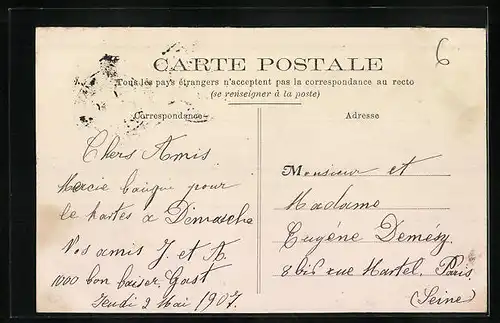 6
CARTE POSTALE
Tous les pays étrangers n'acceptent pas la correspondance au recto
(se renseigner à la poste)
Correspondance
Chers Amis
Mercie bauque pour
le kartes a Dimanche
Vos amis J. et A.
1000 bon baiser Gast
Jeudi 2 Mai 1907.
Adresse
Monsieur et
Madame
Eugéne Demésy.
8 bis rue Martel. Paris
(Seine)